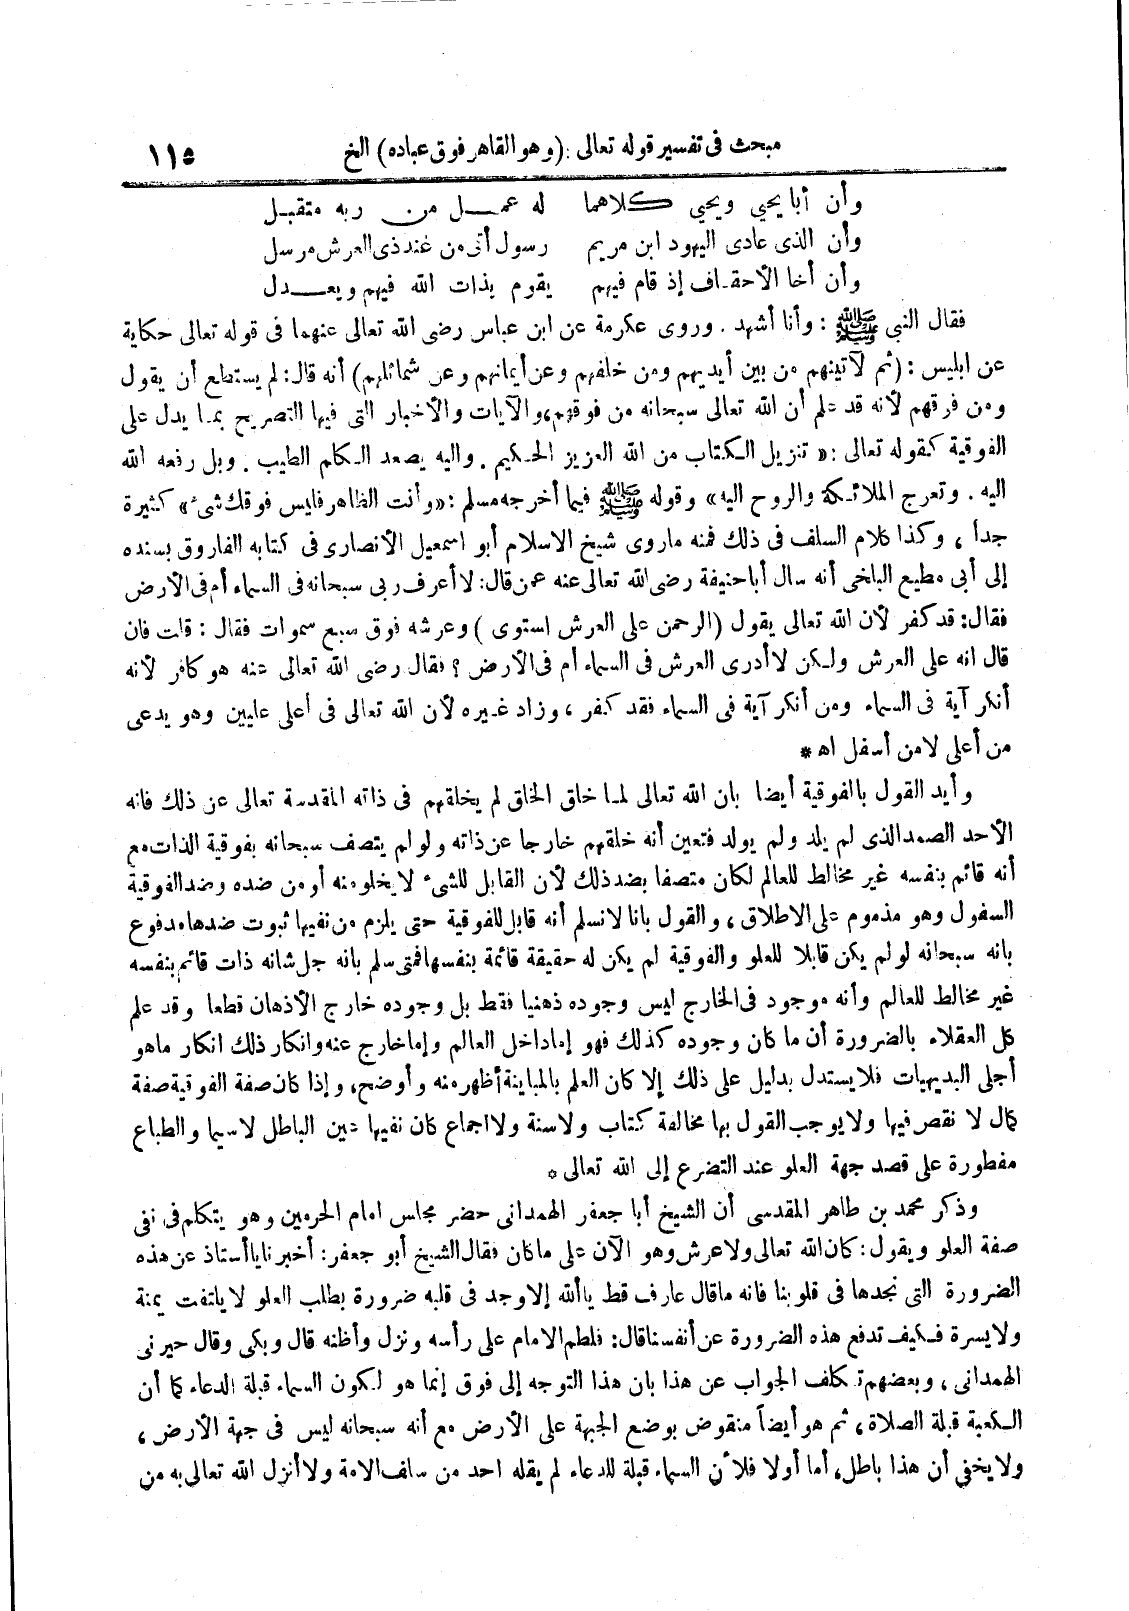 مبحث فى تفسير قوله تعالى : (وهو القاهر فوق عباده) الخ ١١٥
وأن أبا يحيى ويحيى كلاهما له عمل من ربه متقبل
وأن الذى عادى اليهود ابن مريم رسول أتى من عند ذى العرش مرسل
وأن أخا الأحقاف إذ قام فيهم يقوم بذات الله فيهم ويعدل
فقال النبى ﷺ : وأنا أشهد . وروى عكرمة عن ابن عباس رضى الله تعالى عنهما فى قوله تعالى حكاية
عن ابليس : (ثم لآتينهم من بين أيديهم ومن خلفهم وعن أيمانهم وعن شمائلهم) أنه قال: لم يستطع أن يقول
ومن فوقهم لأنه قد علم أن الله تعالى سبحانه من فوقهم، والآيات والأخبار التى فيها التصريح بما يدل على
الفوقية كقوله تعالى : « تنزيل الكتاب من الله العزيز الحكيم . واليه يصعد الكلم الطيب . وبل رفعه الله
اليه . وتعرج الملائكة والروح اليه» وقوله ﷺ فيما أخرجه مسلم : «وأنت الظاهر فليس فوقك شىء» كثيرة
جدا ، وكذا كلام السلف فى ذلك فمنه ماروى شيخ الاسلام أبو اسمعيل الأنصارى فى كتابه الفاروق بسنده
إلى أبى مطيع البلخى أنه سال أبا حنيفة رضى الله تعالى عنه عمن قال: لا أعرف ربى سبحانه فى السماء أم فى الأرض
فقال: قد كفر لأن الله تعالى يقول (الرحمن على العرش استوى ) وعرشه فوق سبع سموات فقال : قلت فان
قال انه على العرش ولكن لا أدرى العرش فى السماء أم فى الأرض ؟ فقال رضى الله تعالى عنه هو كافر لأنه
أنكر آية فى السماء ومن أنكر آية فى السماء فقد كفر ، وزاد غيره لأن الله تعالى فى أعلى عليين وهو يدعى
من أعلى لا من أسفل اه *
وأيد القول بالفوقية أيضا بان الله تعالى لما خلق الخلق لم يخلقهم فى ذاته المقدسة تعالى عن ذلك فانه
الأحد الصمد الذى لم يلد ولم يولد فتعين أنه خلقهم خارجا عن ذاته ولو لم يتصف سبحانه بفوقية الذات مع
أنه قائم بنفسه غير مخالط للعالم لكان متصفا بضد ذلك لأن القابل للشىء لا يخلو منه أو من ضده وضد الفوقية
السفول وهو مذموم على الاطلاق ، والقول بانا لا نسلم أنه قابل للفوقية حتى يلزم من نفيها ثبوت ضدها مدفوع
بانه سبحانه لو لم يكن قابلا للعلو والفوقية لم يكن له حقيقة قائمة بنفسها فمتى سلم بانه جل شانه ذات قائم بنفسه
غير مخالط للعالم وأنه موجود فى الخارج ليس وجوده ذهنيا فقط بل وجوده خارج الأذهان قطعا وقد علم
كل العقلاء بالضرورة أن ما كان وجوده كذلك فهو إما داخل العالم وإما خارج عنه وانكار ذلك انكار ماهو
أجلى البديهيات فلا يستدل بدليل على ذلك إلا كان العلم بالمباينة أظهر منه وأوضح، وإذا كان صفة الفوقية صفة
كمال لا نقص فيها ولا يوجب القول بها مخالفة كتاب ولا سنة ولا اجماع كان نفيها عين الباطل لاسيما والطباع
مفطورة على قصد جهة العلو عند التضرع إلى الله تعالى *
وذكر محمد بن طاهر المقدسى أن الشيخ أبا جعفر الهمدانى حضر مجلس امام الحرمين وهو يتكلم فى نفى
صفة العلو ويقول : كان الله تعالى ولا عرش وهو الآن على ما كان فقال الشيخ أبو جعفر : أخبرنا يا أستاذ عن هذه
الضرورة التى نجدها فى قلوبنا فانه ماقال عارف قط يا ألله إلا وجد فى قلبه ضرورة بطلب العلو لا يلتفت يمنة
ولا يسرة فكيف تدفع هذه الضرورة عن أنفسنا قال: فلطم الامام على رأسه ونزل وأظنه قال وبكى وقال حيرنى
الهمدانى ، وبعضهم تكلف الجواب عن هذا بان هذا التوجه إلى فوق إنما هو لكون السماء قبلة الدعاء كما أن
الكعبة قبلة الصلاة، ثم هو أيضاً منقوض بوضع الجبهة على الأرض مع أنه سبحانه ليس فى جهة الأرض ،
ولا يخفى أن هذا باطل، أما أولا فلأن السماء قبلة للدعاء لم يقله احد من سلف الامة ولا أنزل الله تعالى به من